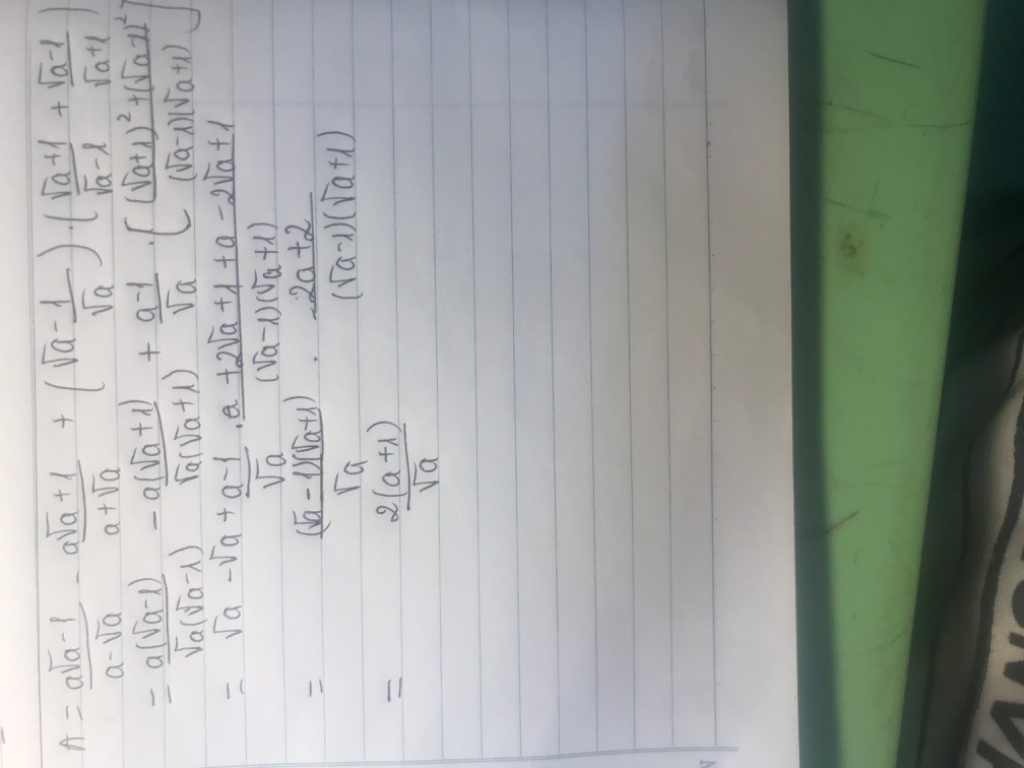 A = a√a-1/a-√a - a√a+1/a+√a + (√a - 1/√a) . (√a+1/√a-1 + √a-1/√a+1)
= a(√a-1)/√a(√a-1) - a(√a+1)/√a(√a+1) + a-1/√a . [(√a+1)²+(√a-1)²/(√a-1)(√a+1)]
= √a - √a + a-1/√a . a+2√a+1+a-2√a+1/(√a-1)(√a+1)
= (√a-1)(√a+1)/√a . 2a+2/(√a-1)(√a+1)
= 2(a+1)/√a